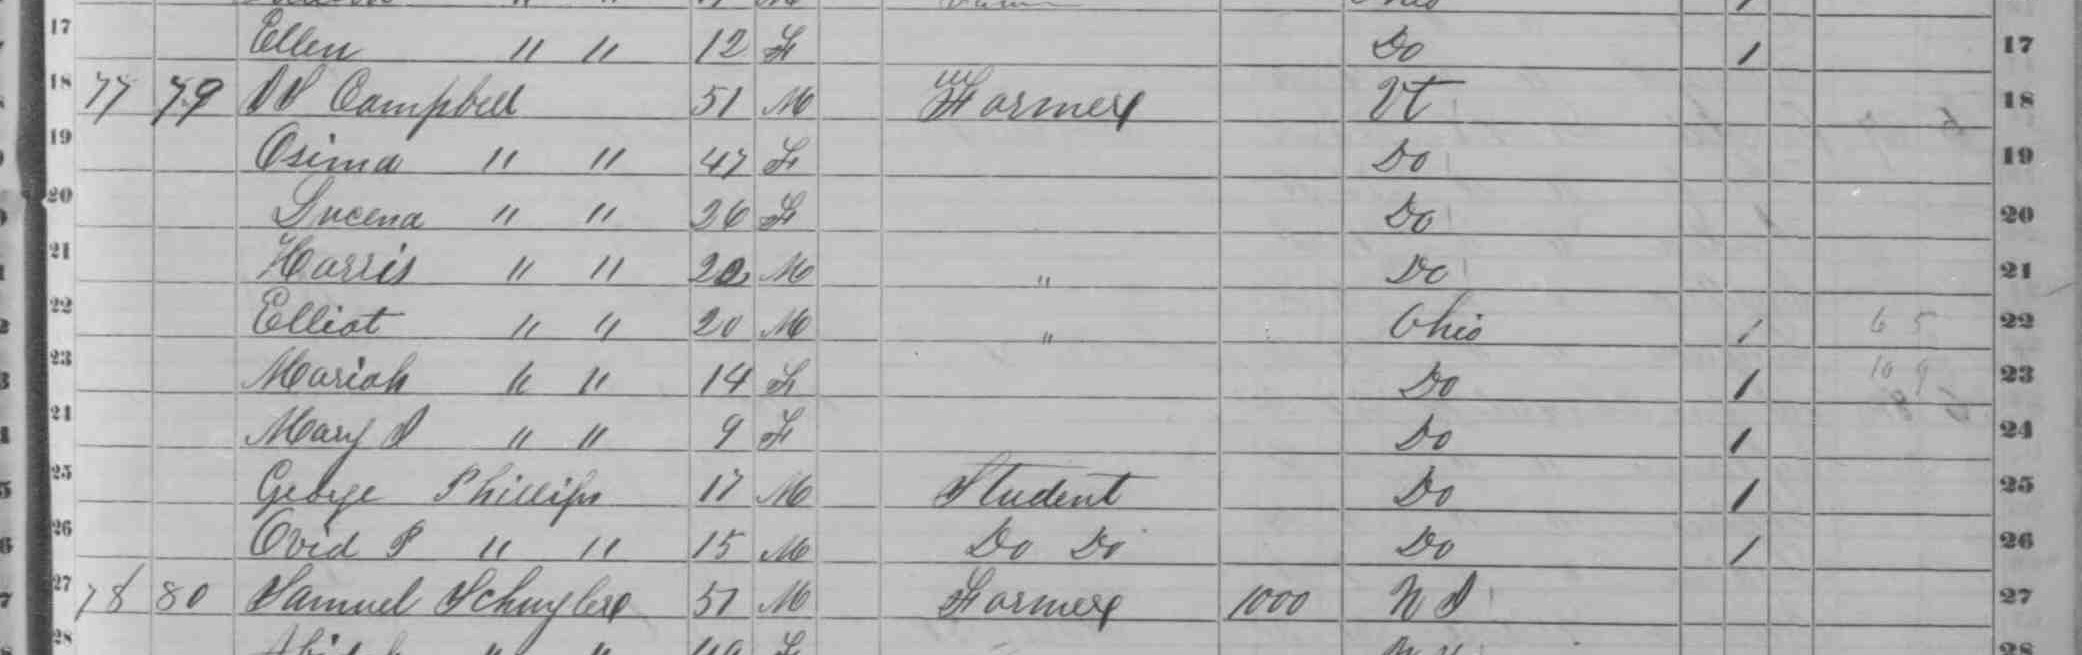 17 Ellen " " 12 F Do 1 17
18 77 79 Campbell 51 M Farmer Vt 18
19 Osima " " 47 F Do 19
20 Lucena " " 26 F Do 20
21 Harris " " 22 M " Do 21
22 Elliot " " 20 M " Ohio 1 6 5 22
23 Mariah " " 14 F Do 1 10 9 23
24 Mary " " 9 F Do 1 24
25 George Phillips 17 M Student Do 1 25
26 Ovid P " " 15 M Do Do Do 1 26
27 78 80 Samuel Schuyler 51 M Farmer 1000 27
28 " " F 28